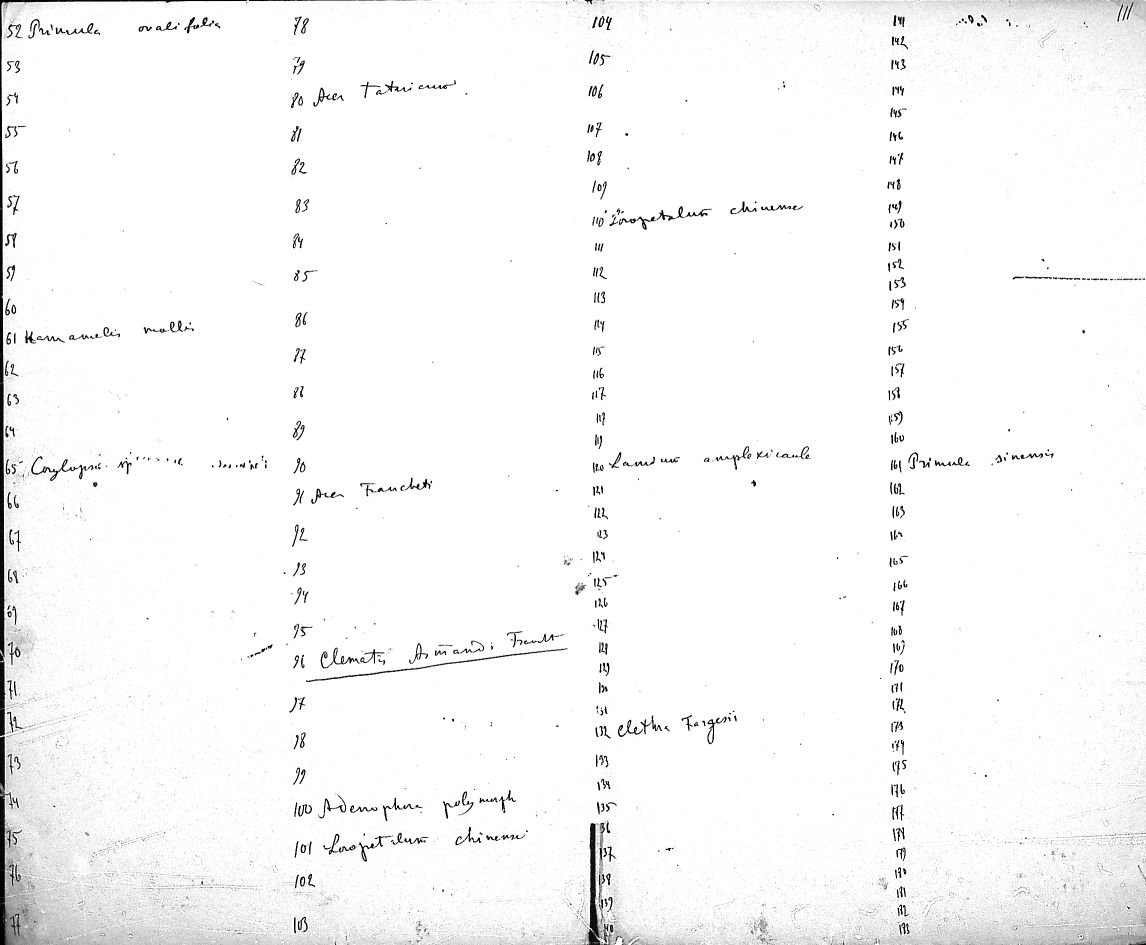 111
52 Primula ovalifolia
53
54
55
56
57
58
59
60
61 Hamamelis mollis
62
63
64
65 Corylopsis
66
67
68
69
70
71
72
73
74
75
76
77
78
79
80 Acer Tataricum
81
82
83
84
85
86
87
88
89
90
91 Acer Francheti
92
93
94
95
96 Clematis Armandi Francht
97
98
99
100 Adenophora polymorph
101 Loropetalum chinense
102
103
104
105
106
107
108
109
110 Loropetalum chinense
111
112
113
114
115
116
117
118
119
120 Lamium amplexicaule
121
122
123
124
125
126
127
128
129
130
131
132 Clethra Fargesii
133
134
135
136
137
138
139
140
141
142
143
144
145
146
147
148
149
150
151
152
153
154
155
156
157
158
159
160
161 Primula sinensis
162
163
164
165
166
167
168
169
170
171
172
173
174
175
176
177
178
179
180
181
182
183